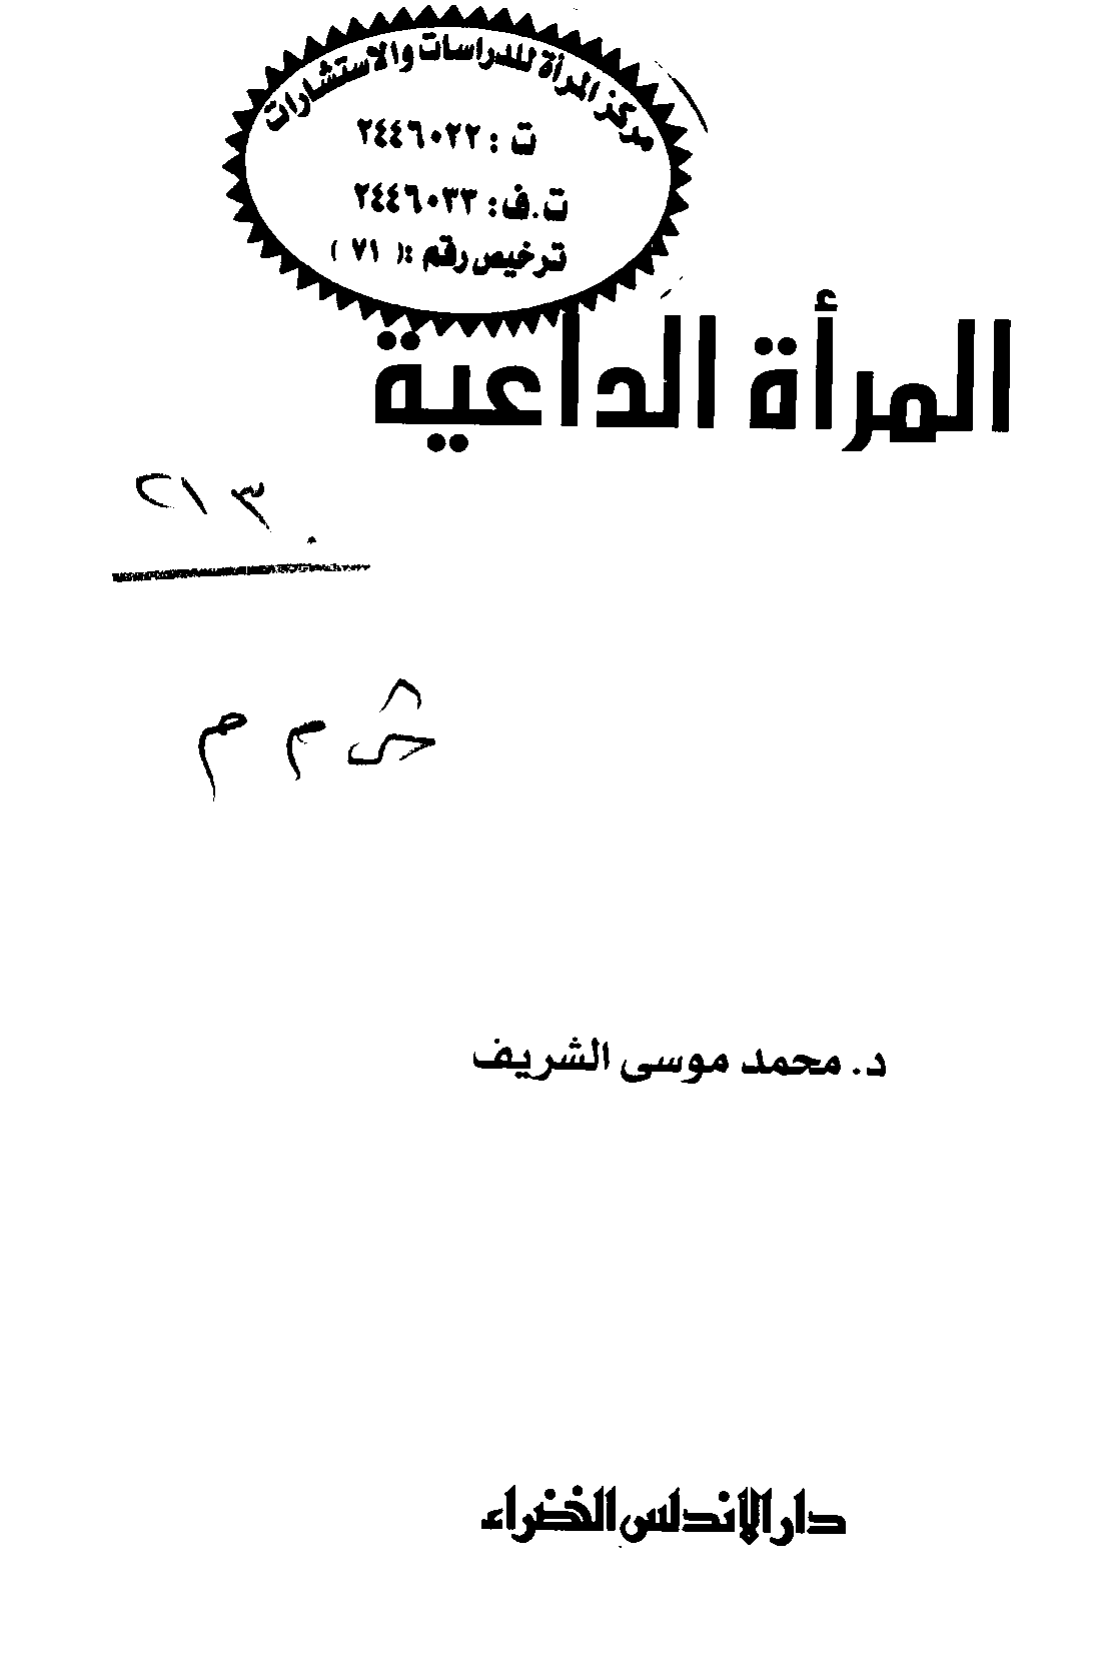 مركز المرأة للدراسات والاستشارات
ت : ٢٤٤٦٠٢٢
ت.ف: ٢٤٤٦٠٣٣
ترخيص رقم :( ٧١ )
المرأة الداعية
٢١٣
م م
د. محمد موسى الشريف
دار الأندلس الخضراء